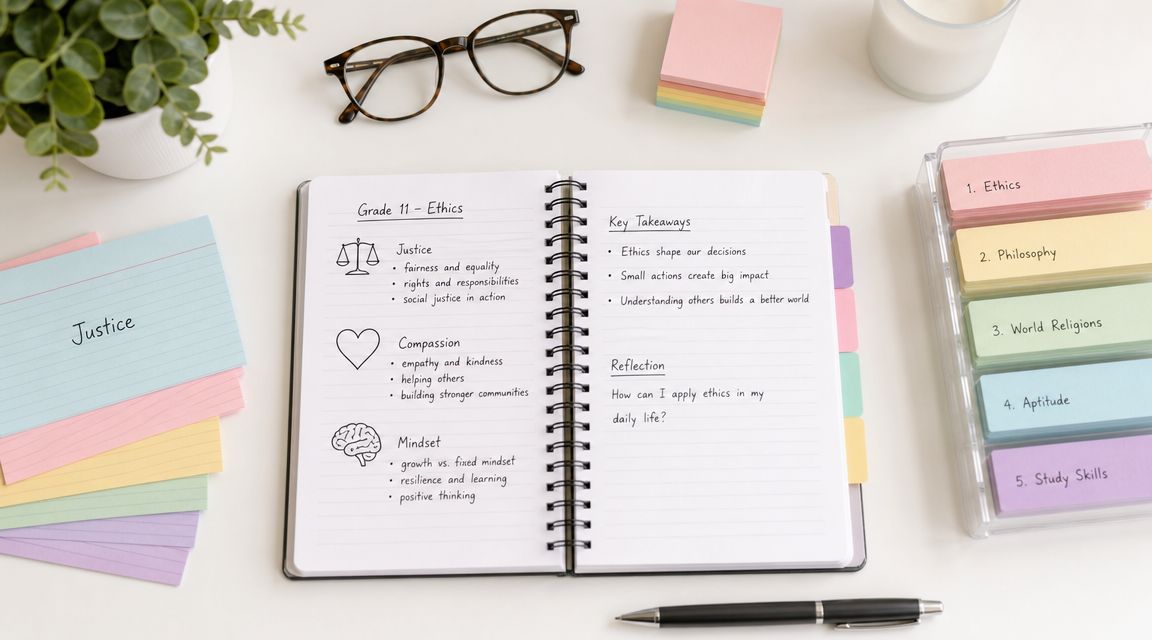 Justice
Grade 11 – Ethics
Justice
• fairness and equality
• rights and responsibilities
• social justice in action
Compassion
• empathy and kindness
• helping others
• building stronger communities
Mindset
• growth vs. fixed mindset
• resilience and learning
• positive thinking
Key Takeaways
• Ethics shape our decisions
• Small actions create big impact
• Understanding others builds a better world
Reflection
How can I apply ethics in my
daily life?
1. Ethics
2. Philosophy
3. World Religions
4. Aptitude
5. Study Skills